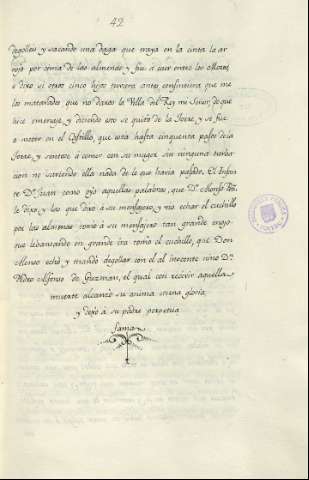 42
degollen y sacando una daga que traya en la cinta la ar
rojo por cima de las almenas y fue a caer entre los Moros,
e dixo si otros cinco hijos tuviera antes consintiera que me
los matarades que no daros la Villa del Rey mi Señor, de que
hice omenaje, y diciendo esto se quito de la Torre, y se fue
a meter en el Castillo, que esta hasta cinquenta pasos de la
Torre, y sentose a comer con su muger sin ninguna turba
cion no sabiendo ella nada de lo que havia pasado. El Infan
te Dn Juan como oyo aquellas palabras, que Dn Alonso Pe
le dixo, y las que dixo a su mensagero, y vio echar el cuchillo
por las almenas tomo a su mensajero tan grande enojo
que lebantando en grande ira tomo el cuchillo, que Don
Alonso echo y mandó degollar con el al inocente niño Dn
Pedro Alfonso de Guzman, el qual con recivir aquella
muerte alcanzó su anima eterna gloria,
y dejó a su padre perpetua
fama